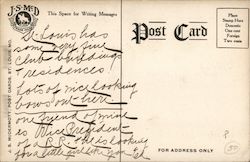 J-S-McD
This Space for Writing Messages
Post Card
Place
Stamp Here
Domestic
One cent
Foreign
Two cents
St Louis has
some very fine
Club buildings
& residences!
Lots of nice looking
bows out here
one friend of mine
is Vice President
of a R.R. & he is looking
for a little girl like you Ed
FOR ADDRESS ONLY
J. S. McDERMOTT, POST CARDS, ST. LOUIS, MO.
50